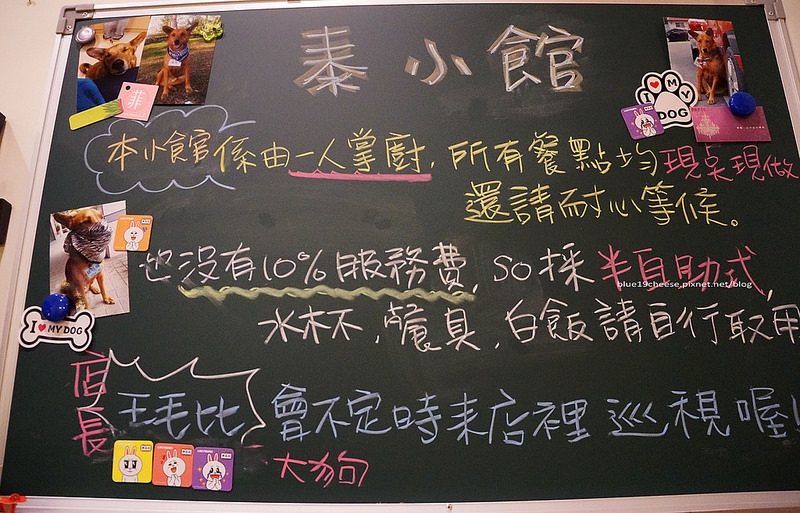 泰小館
I ♥ MY DOG
菲
本小館係由一人掌廚，所有餐點均現桌現做
還請耐心等候。
也沒有10%服務費，so採半自助式，
blue19cheese.pixnet.net/blog
水杯，餐具，白飯請自行取用
I ♥ MY DOG
店長 王毛比 會不定時來店裡巡視喔！
大狗